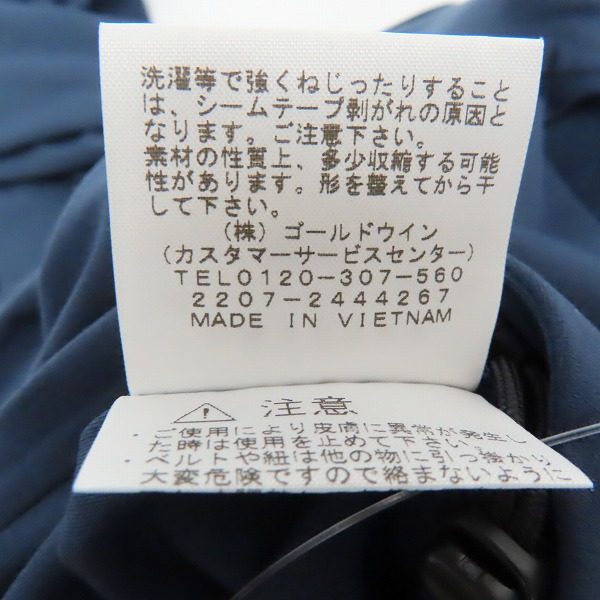 洗濯等で強くねじったりすること
は、シームテープ剥がれの原因と
なります。ご注意下さい。
素材の性質上、多少収縮する可能
性があります。形を整えてから干
して下さい。
(株) ゴールドウイン
(カスタマーサービスセンター)
TEL0120-307-560
2207-2444267
MADE IN VIETNAM
注意
・ご使用により皮膚に異常が発生し
た時は使用を止めて下さい。
・ベルトや紐は他の物に引っ掛かり
大変危険ですので絡まないように